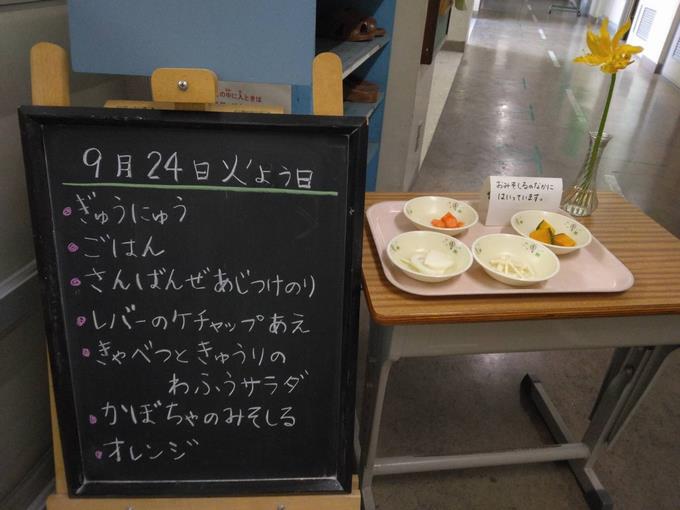 9月24日火よう日
ぎゅうにゅう
ごはん
さんばんぜあじつけのり
レバーのケチャップあえ
きゃべつときゅうりの
わふうサラダ
かぼちゃのみそしる
オレンジ
おみそしるのなかに
はいっています。